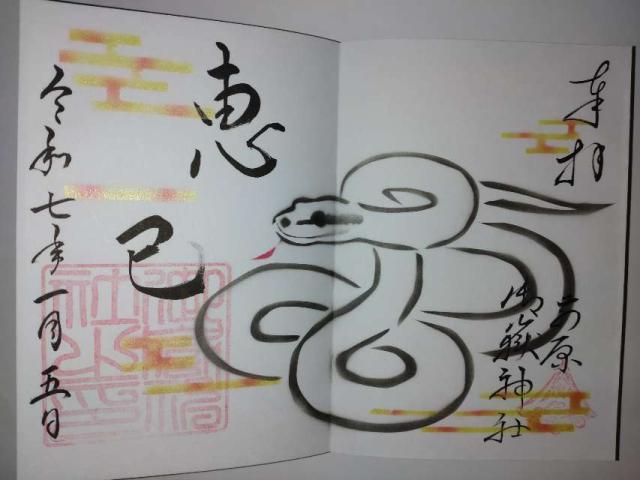 奉拝
御嶽神社
恵
巳
令和七年一月五日